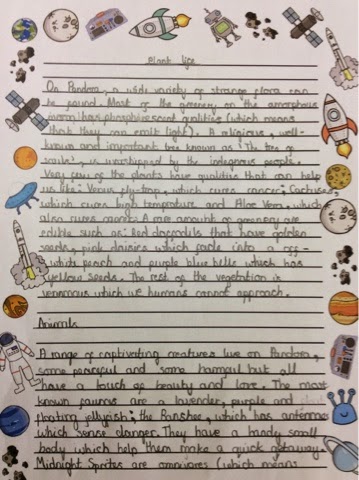 Plant life
On Pandora, a wide variety of strange flora can
be found. Most of the greenery on the amorphous
moon has phosphorescent qualities (which means
that they can emit light). A religious, well-
known and important tree known as 'The tree of
souls', is worshipped by the indegnous people.
Very few of the plants have qualities that can help
us like: Venus fly-trap, which cures cancer; Cactuses,
which cures high temperature and Aloe Vera, which
also cures . A rare amount of greenery are
edible such as: Red daffodils that have golden
seeds, pink daisies which fade into a egg-
white peach and purple blue bells which has
yellow seeds. The rest of the vegetation is
venomous which we humans cannot approach.
Animals
A range of captivating creatures live on Pandora,
some peaceful and some harmful but all
have a touch of beauty and love. The most
known faunas are a lavender, purple and
floating jellyfish; the Banshee, which has antennas
which sense danger. They have a handy small
body which help them make a quick getaway.
Midnight Sprites are omnivores (which means